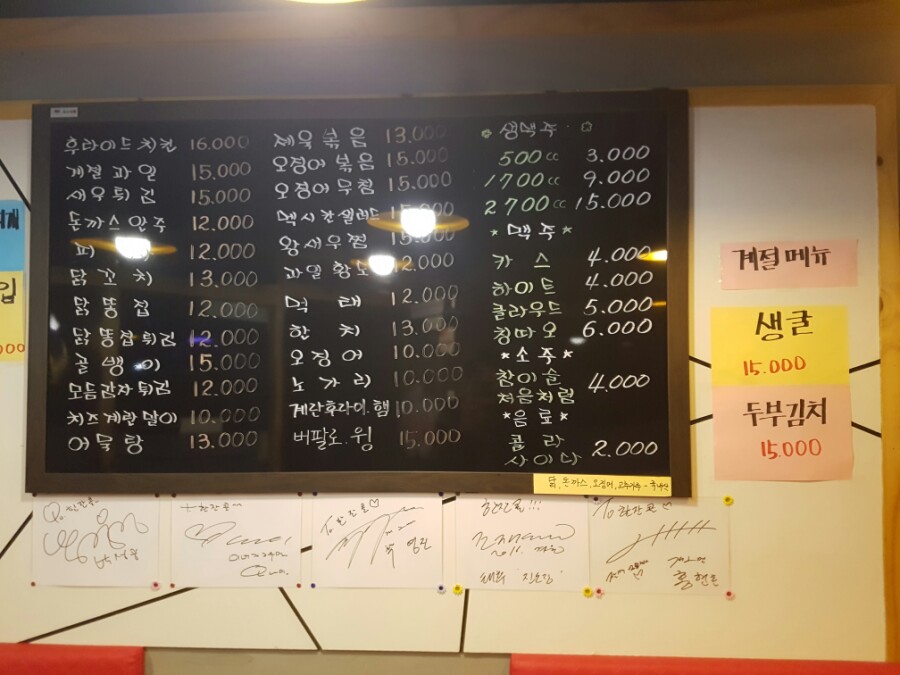 후라이드치킨 16.000
계절과일 15.000
새우튀김 15.000
돈까스안주 12.000
12.000
닭꼬치 13.000
닭똥집 12.000
닭똥집튀김 12.000
골뱅이 15.000
모듬감자튀김 12.000
치즈계란말이 10.000
어묵탕 13.000
제육볶음 13.000
오징어볶음 15.000
오징어무침 15.000
멕시칸샐러드
왕새우찜 15.000
과일황도 12.000
먹태 12.000
한치 13.000
오징어 10.000
노가리 10.000
계란후라이.햄 10.000
버팔로.윙 15.000
생맥주
500cc 3.000
1700cc 9.000
2700cc 15.000
*맥주*
카스 4.000
하이트 4.000
클라우드 5.000
칭따오 6.000
*소주*
참이슬
처음처럼 4.000
*음료*
콜라
사이다 2.000
닭,돈까스,오징어,고추가루-국내산
계절메뉴
생굴
15.000
두부김치
15.000